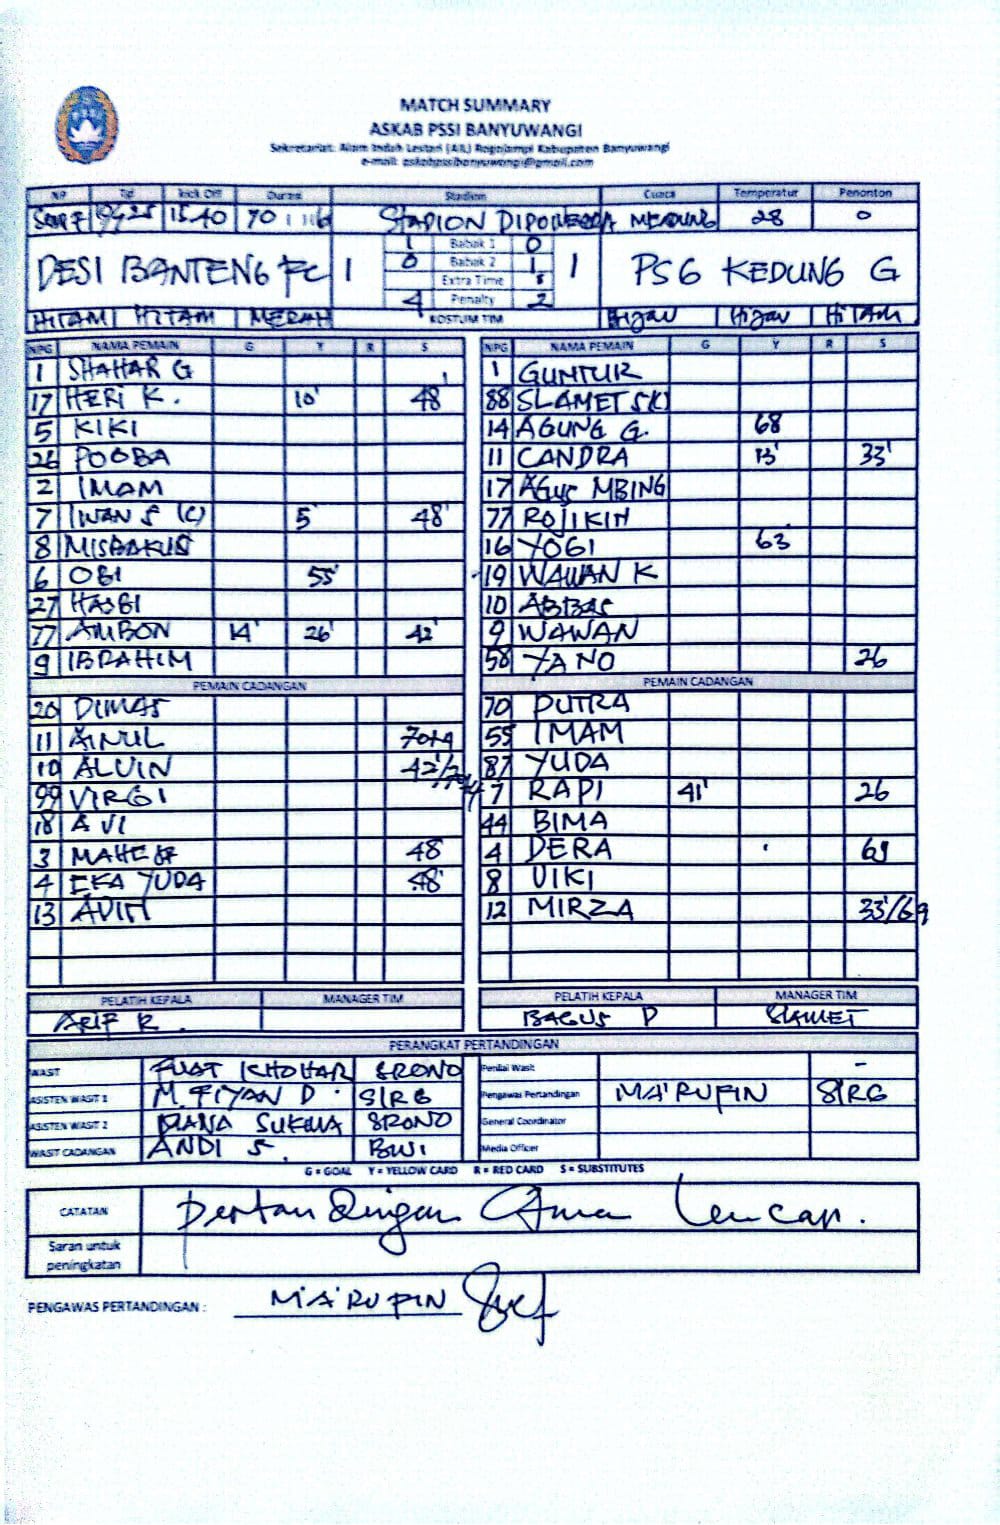 MATCH SUMMARY
ASKAB PSSI BANYUWANGI
Sekretariat: Alam Indah Lestari (AIL) Rogojampi Kabupaten Banyuwangi
e-mail: askabpssibanyuwangi@gmail.com
NP Tgl Kick Off Durasi Stadion Cuaca Temperatur Penonton
15.40 70 STADION DIPONEGORO MENDUNG 28 0
DESI BANTENG FC 1 1 Babak 1 0 1 PSG KEDUNG G
0 Babak 2 1
Extra Time
4 Penalty 2
HITAM HITAM MERAH KOSTUM TIM Hijau Hijau HITAM
NPG NAMA PEMAIN G Y R S NPG NAMA PEMAIN G Y R S
1 SHAHAR G 1 GUNTUR
17 HERI K. 10' 48' 88 SLAMET S (K)
5 KIKI 14 AGUNG G. 68
26 POOBA 11 CANDRA 13' 33'
2 IMAM 17 AGUS MBING
7 IWAN S (C) 5' 48' 77 ROJIKIN
8 MISBAKUS 16 YOGI 63
6 OBI 55' 19 WAWAN K
27 HASBI 10 ABBAS
77 AMBON 14' 26' 42' 9 WAWAN
9 IBRAHIM 58 YANO 26
PEMAIN CADANGAN PEMAIN CADANGAN
20 DIMAS 70 PUTRA
11 AINUL 70+4 55 IMAM
10 ALVIN 42'/70+4 87 YUDA
99 VIRGI 7 RAPI 41' 26
18 AVI 44 BIMA
3 MAHESA 48 4 DERA 69
4 EKA YUDA 48' 8 VIKI
13 12 MIRZA 33'/69
PELATIH KEPALA MANAGER TIM PELATIH KEPALA MANAGER TIM
ARIF R. BAGUS P SLAMET
PERANGKAT PERTANDINGAN
WASIT FUAT KHOHARI SRONO Penilai Wasit -
ASISTEN WASIT 1 M. FIYAN D. SIRG Pengawas Pertandingan MA'RUFIN SIRG
ASISTEN WASIT 2 SUKMA SRONO General Coordinator
WASIT CADANGAN ANDI S. BWI Media Officer
G = GOAL Y = YELLOW CARD R = RED CARD S = SUBSTITUTES
CATATAN Pertandingan Aman Lancar.
Saran untuk
peningkatan
PENGAWAS PERTANDINGAN : MA'RUFIN